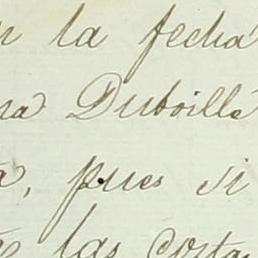 la fecha
Duboille
pues si
las corta